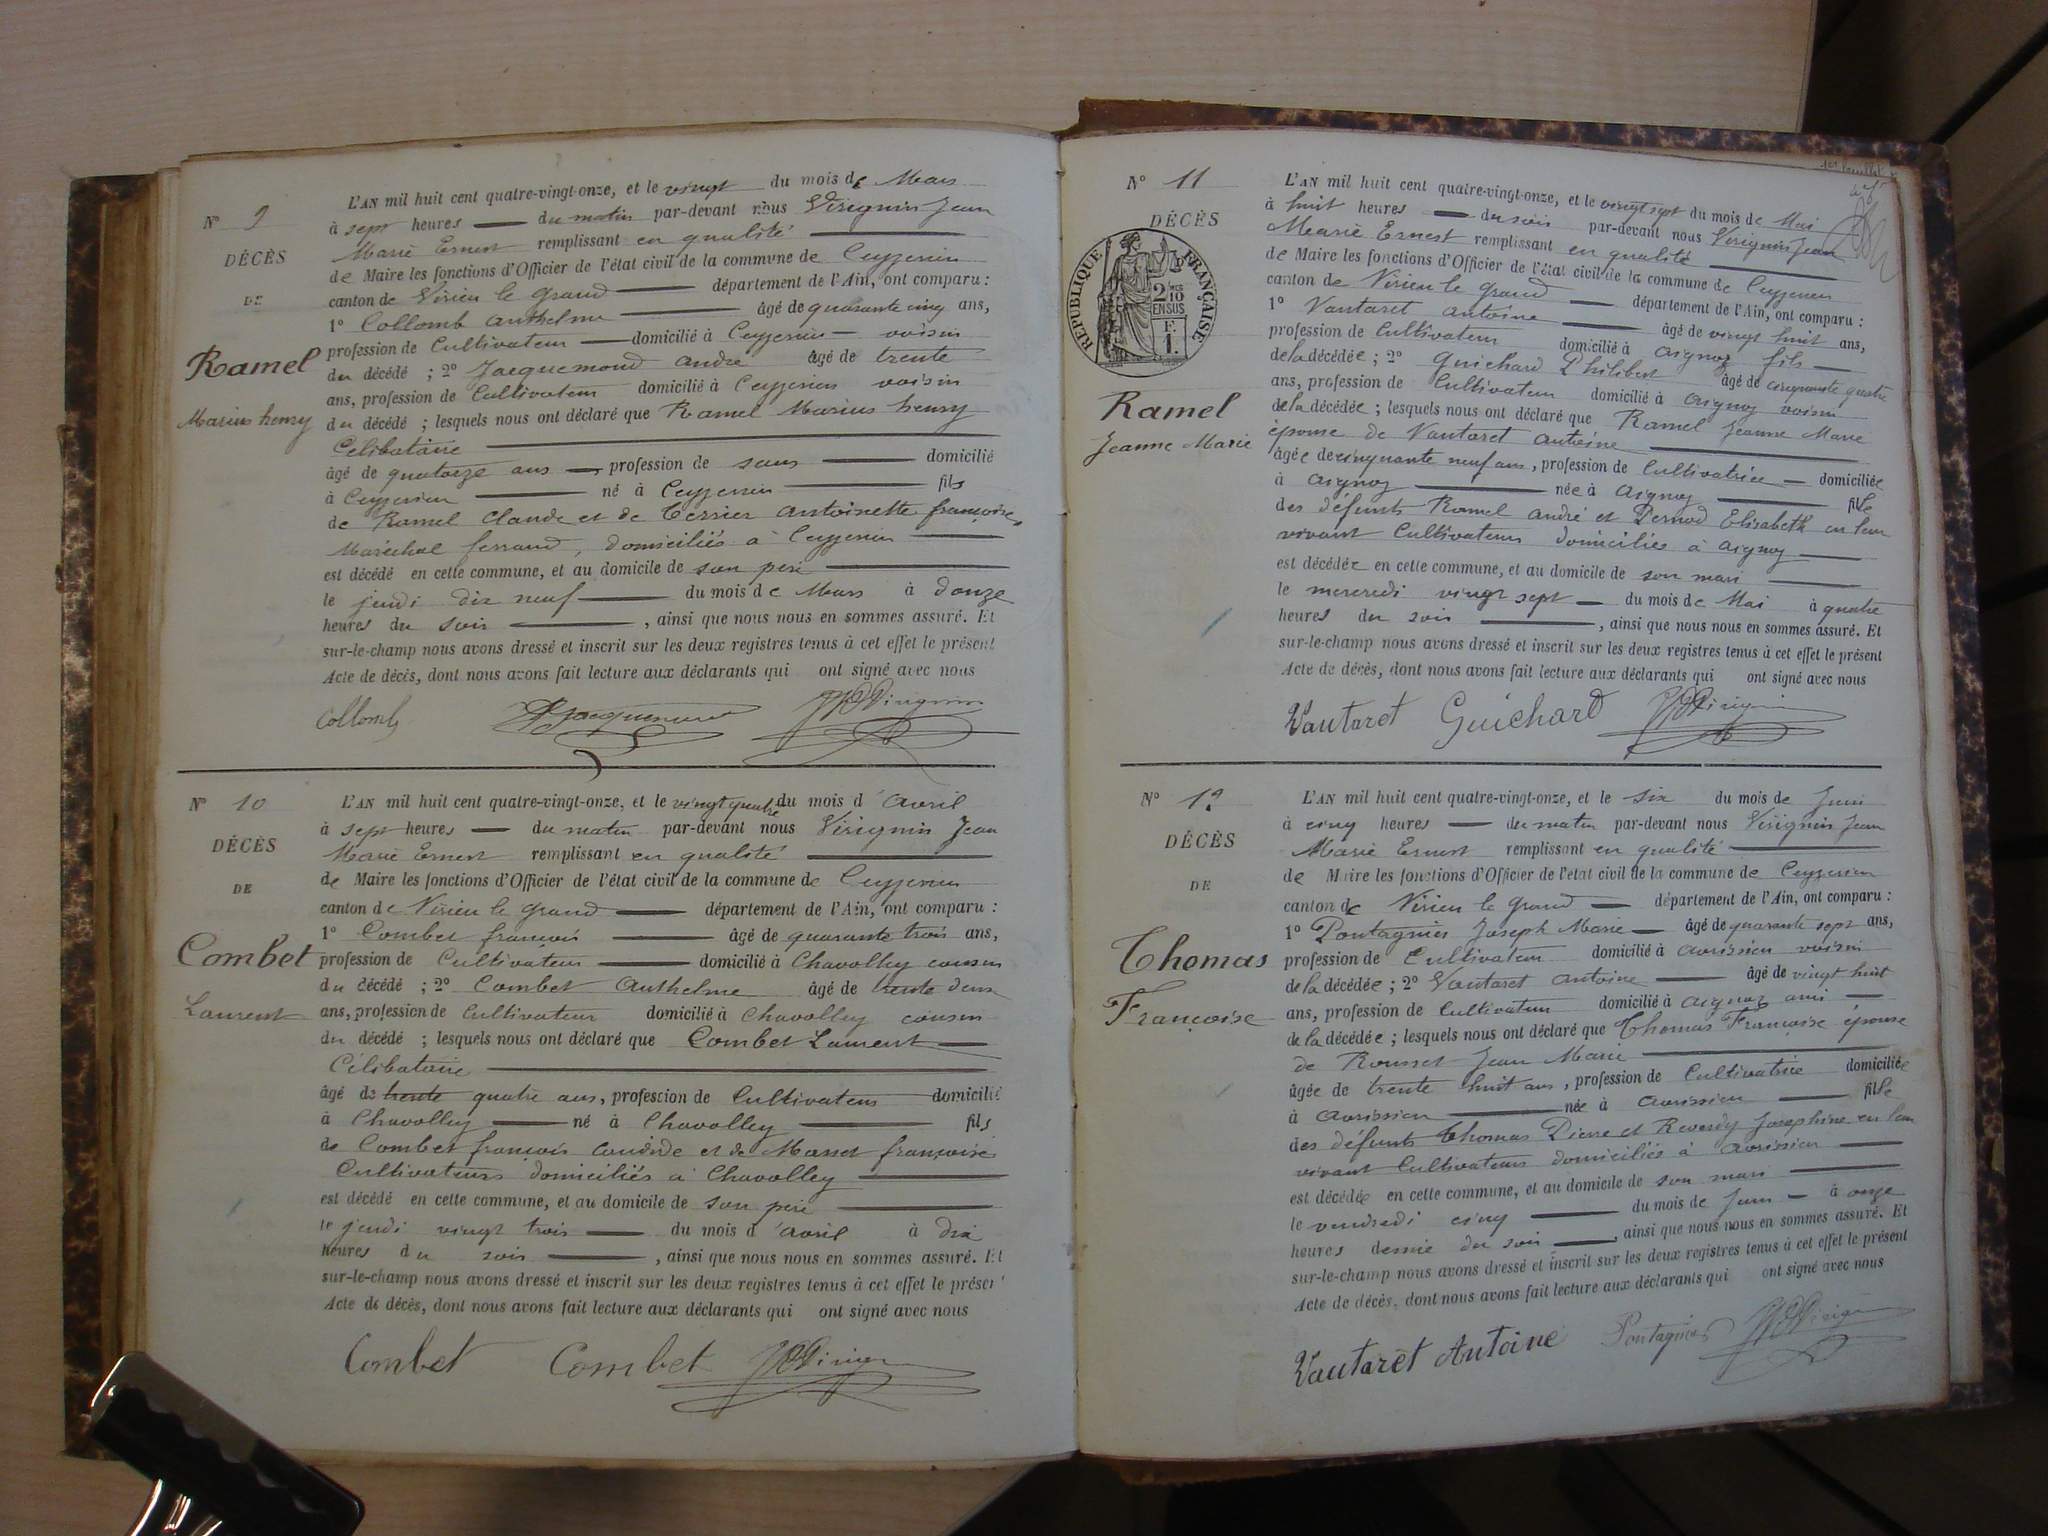 N° 9
DÉCÈS
DE
Ramel
Marius henry
L'AN mil huit cent quatre-vingt-onze, et le vingt du mois de Mars
à sept heures du matin par-devant nous Virignin Jean
Marie Ernest remplissant en qualité
de Maire les fonctions d'Officier de l'état civil de la commune de Ceyzerieu
canton de Virieu le grand département de l'Ain, ont comparu :
1° Collomb Anthelme âgé de quarante cinq ans,
profession de Cultivateur domicilié à Ceyzerieu voisin
du décédé ; 2° Jacquemond andré âgé de trente
ans, profession de Cultivateur domicilié à Ceyzerieu voisin
du décédé ; lesquels nous ont déclaré que Ramel Marius henry
Célibataire
âgé de quatorze ans, profession de sans domicilié
à Ceyzerieu né à Ceyzerieu fils
de Ramel Claude et de Terrier Antoinette françoise,
Maréchal ferrand, domiciliés à Ceyzerieu
est décédé en cette commune, et au domicile de son père
le jeudi dix neuf du mois de Mars à douze
heures du soir , ainsi que nous nous en sommes assuré. Et
sur-le-champ nous avons dressé et inscrit sur les deux registres tenus à cet effet le présent
Acte de décès, dont nous avons fait lecture aux déclarants qui ont signé avec nous
Collomb Jacquemond Virignin
N° 10
DÉCÈS
DE
Combet
Laurent
L'AN mil huit cent quatre-vingt-onze, et le vingt quatre du mois d'avril
à sept heures du matin par-devant nous Virignin Jean
Marie Ernest remplissant en qualité
de Maire les fonctions d'Officier de l'état civil de la commune de Ceyzerieu
canton de Virieu le grand département de l'Ain, ont comparu :
1° Combet françois âgé de quarante trois ans,
profession de Cultivateur domicilié à Chavolley cousin
du décédé ; 2° Combet Anthelme âgé de trente deux
ans, profession de Cultivateur domicilié à Chavolley cousin
du décédé ; lesquels nous ont déclaré que Combet Laurent
Célibataire
âgé de trente quatre ans, profession de Cultivateur domicilié
à Chavolley né à Chavolley fils
de Combet françois et de Masset françoise
Cultivateurs domiciliés à Chavolley
est décédé en cette commune, et au domicile de son père
le jeudi vingt trois du mois d'avril à dix
heures du soir , ainsi que nous nous en sommes assuré. Et
sur-le-champ nous avons dressé et inscrit sur les deux registres tenus à cet effet le présent
Acte de décès, dont nous avons fait lecture aux déclarants qui ont signé avec nous
Combet Combet Virignin
1er feuillet
N° 11
DÉCÈS
RÉPUBLIQUE FRANÇAISE
2/10 EN SUS
F.
1.
Ramel
Jeanne Marie
L'AN mil huit cent quatre-vingt-onze, et le vingt sept du mois de Mai
à huit heures du soir par-devant nous Virignin Jean
Marie Ernest remplissant en qualité
de Maire les fonctions d'Officier de l'état civil de la commune de Ceyzerieu
canton de Virieu le grand département de l'Ain, ont comparu :
1° Vautaret antoine âgé de vingt huit ans,
profession de Cultivateur domicilié à aignoz fils
de la décédée ; 2° Guichard Philibert âgé de cinquante quatre
ans, profession de Cultivateur domicilié à aignoz voisin
de la décédée ; lesquels nous ont déclaré que Ramel Jeanne Marie
épouse de Vautaret antoine
âgée de cinquante neuf ans, profession de Cultivatrice domiciliée
à aignoz née à aignoz fille
des défunts Ramel andré et Pernod Elisabeth en leur
vivant Cultivateurs domiciliés à aignoz
est décédée en cette commune, et au domicile de son mari
le mercredi vingt sept du mois de Mai à quatre
heures du soir , ainsi que nous nous en sommes assuré. Et
sur-le-champ nous avons dressé et inscrit sur les deux registres tenus à cet effet le présent
Acte de décès, dont nous avons fait lecture aux déclarants qui ont signé avec nous
Vautaret Guichard Virignin
N° 12
DÉCÈS
DE
Thomas
Françoise
L'AN mil huit cent quatre-vingt-onze, et le six du mois de Juin
à cinq heures du matin par-devant nous Virignin Jean
Marie Ernest remplissant en qualité
de Maire les fonctions d'Officier de l'état civil de la commune de Ceyzerieu
canton de Virieu le grand département de l'Ain, ont comparu :
1° Pontagnier Joseph Marie âgé de quarante sept ans,
profession de Cultivateur domicilié à avrissieu voisin
de la décédée ; 2° Vautaret antoine âgé de vingt huit
ans, profession de Cultivateur domicilié à aignoz ami
de la décédée ; lesquels nous ont déclaré que Thomas Françoise épouse
de Rousset Jean Marie
âgée de trente huit ans, profession de Cultivatrice domiciliée
à avrissieu née à avrissieu fille
des défunts Thomas Pierre et Reverdy Josephine en leur
vivant Cultivateurs domiciliés à avrissieu
est décédée en cette commune, et au domicile de son mari
le vendredi cinq du mois de Juin à onze
heures demie du soir , ainsi que nous nous en sommes assuré. Et
sur-le-champ nous avons dressé et inscrit sur les deux registres tenus à cet effet le présent
Acte de décès, dont nous avons fait lecture aux déclarants qui ont signé avec nous
Vautaret Antoine Pontagnier Virignin